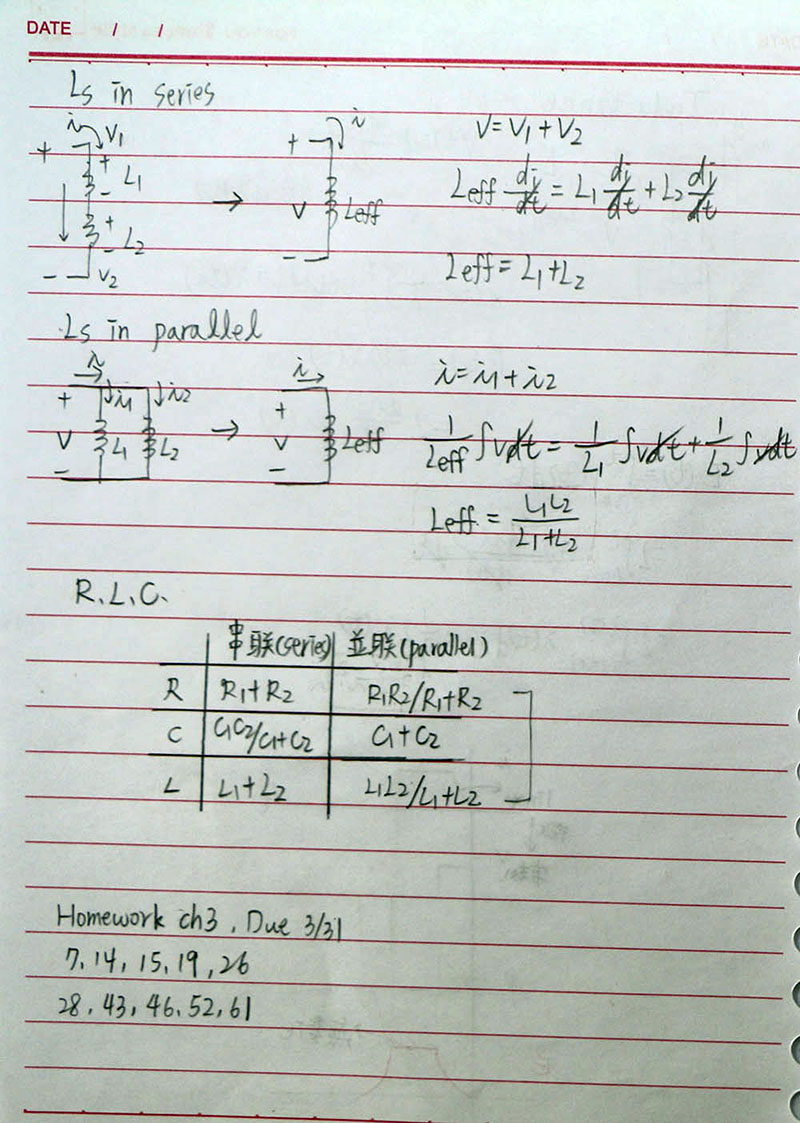 DATE / /
Ls in series
i V1 i V = V1 + V2
+ + L1 - + L2 - V - V2 → + V Leff -
Leff di/dt = L1 di/dt + L2 di/dt
Leff = L1 + L2
Ls in parallel
i i1 i2 i i = i1 + i2
+ V - L1 L2 → + V - Leff
1/Leff ∫vdt = 1/L1 ∫vdt + 1/L2 ∫vdt
Leff = L1L2/L1+L2
R.L.C.
串联(series) 並联(parallel)
R R1+R2 R1R2/R1+R2
C C1C2/C1+C2 C1+C2
L L1+L2 L1L2/L1+L2
Homework ch3, Due 3/31
7, 14, 15, 19, 26
28, 43, 46, 52, 61